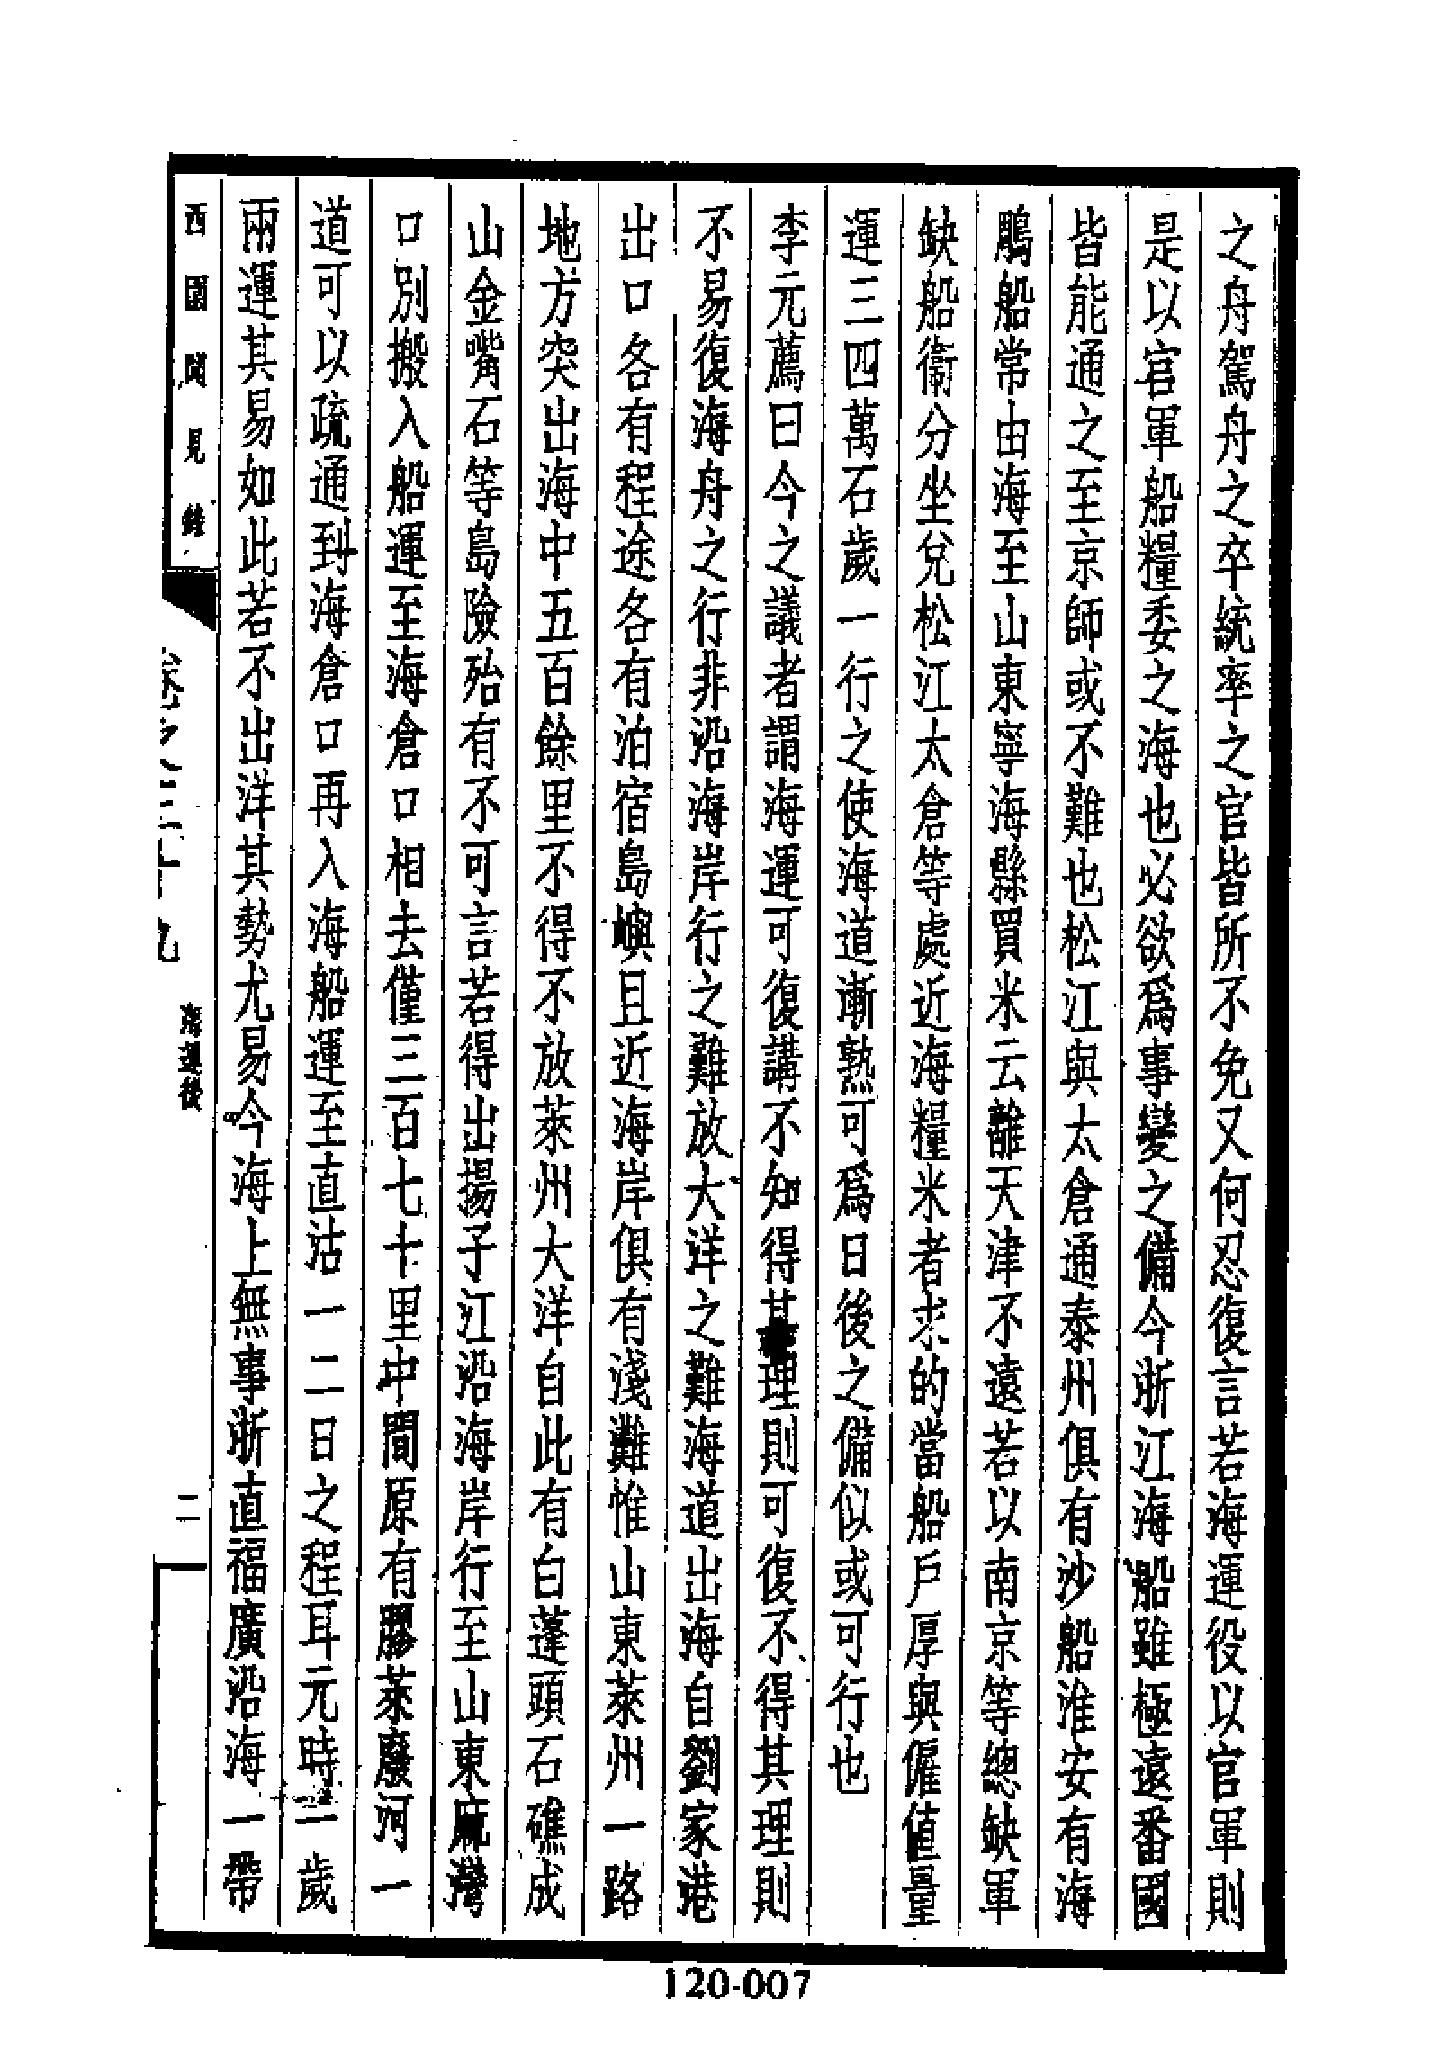 之舟駕舟之卒統率之官皆所不免又何忍復言若海運役以官軍則
是以官軍船糧委之海也必欲爲事變之備今浙江海船雖極遠番國
皆能通之至京師或不難也松江與太倉通泰州俱有沙船淮安有海
鵰船常由海至山東寧海縣買米云離天津不遠若以南京等總缺軍
缺船衞分坐兌松江太倉等處近海糧米者求的當船戶厚與僱値量
運三四萬石歲一行之使海道漸熟可爲日後之備似或可行也
李元薦曰今之議者謂海運可復講不知得其理則可復不得其理則
不易復海舟之行非沿海岸行之難放大洋之難海道出海自劉家港
出口各有程途各有泊宿島嶼且近海岸俱有淺灘惟山東萊州一路
地方突出海中五百餘里不得不放萊州大洋自此有白蓬頭石礁成
山金嘴石等島險殆有不可言若得出揚子江沿海岸行至山東麻灣
口別搬入船運至海倉口相去僅三百七十里中間原有膠萊廢河一
道可以疏通到海倉口再入海船運至直沽一二日之程耳元時三歲
兩運其易如此若不出洋其勢尤易今海上無事浙直福廣沿海一帶
西園聞見錄
卷之三十九
海運後
二
120-007